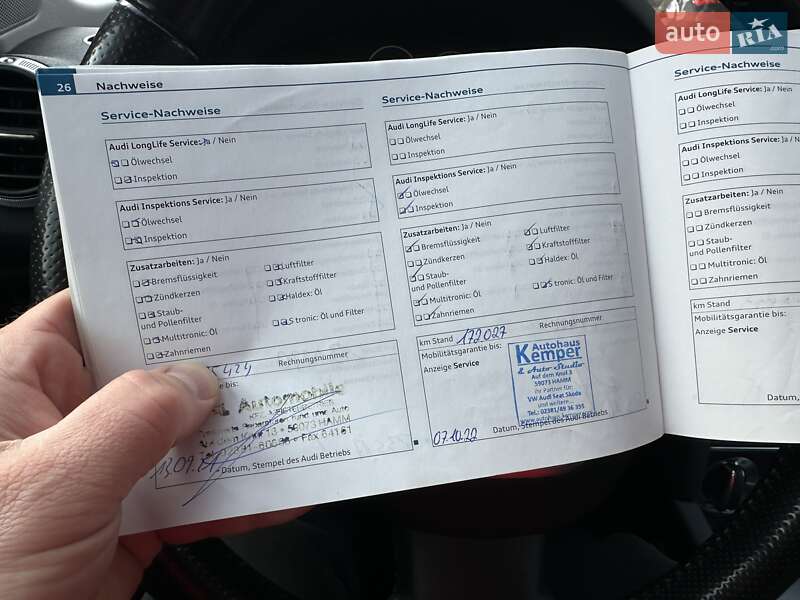 auto RIA
26 Nachweise
Service-Nachweise
Audi LongLife Service: Ja / Nein
Ölwechsel
Inspektion
Audi Inspektions Service: Ja / Nein
Ölwechsel
Inspektion
Zusatzarbeiten: Ja / Nein
Bremsflüssigkeit
Zündkerzen
Staub-
und Pollenfilter
Multitronic: Öl
Zahnriemen
Luftfilter
Kraftstofffilter
Haldex: Öl
S tronic: Öl und Filter
Rechnungsnummer
bis:
Automobile
56073 HAMM
Fax 64161
13.09.21
Datum, Stempel des Audi Betriebs
Service-Nachweise
Audi LongLife Service: Ja / Nein
Ölwechsel
Inspektion
Audi Inspektions Service: Ja / Nein
Ölwechsel
Inspektion
Zusatzarbeiten: Ja / Nein
Bremsflüssigkeit
Zündkerzen
Staub-
und Pollenfilter
Multitronic: Öl
Zahnriemen
Luftfilter
Kraftstofffilter
Haldex: Öl
S tronic: Öl und Filter
km Stand 172.027 Rechnungsnummer
Mobilitätsgarantie bis:
Anzeige Service
Autohaus
Kemper
& Auto Studio
Auf dem Knuf 3
59073 HAMM
Ihr Partner für:
VW Audi Seat Skoda
und weitere...
Tel.: 02381/49 36 355
07.10.22
Datum, Stempel des Audi Betriebs
Service-Nachweise
Audi LongLife Service: Ja / Nein
Ölwechsel
Inspektion
Audi Inspektions Service: Ja / Nein
Ölwechsel
Inspektion
Zusatzarbeiten: Ja / Nein
Bremsflüssigkeit
Zündkerzen
Staub-
und Pollenfilter
Multitronic: Öl
Zahnriemen
km Stand
Mobilitätsgarantie bis:
Anzeige Service
Datum,